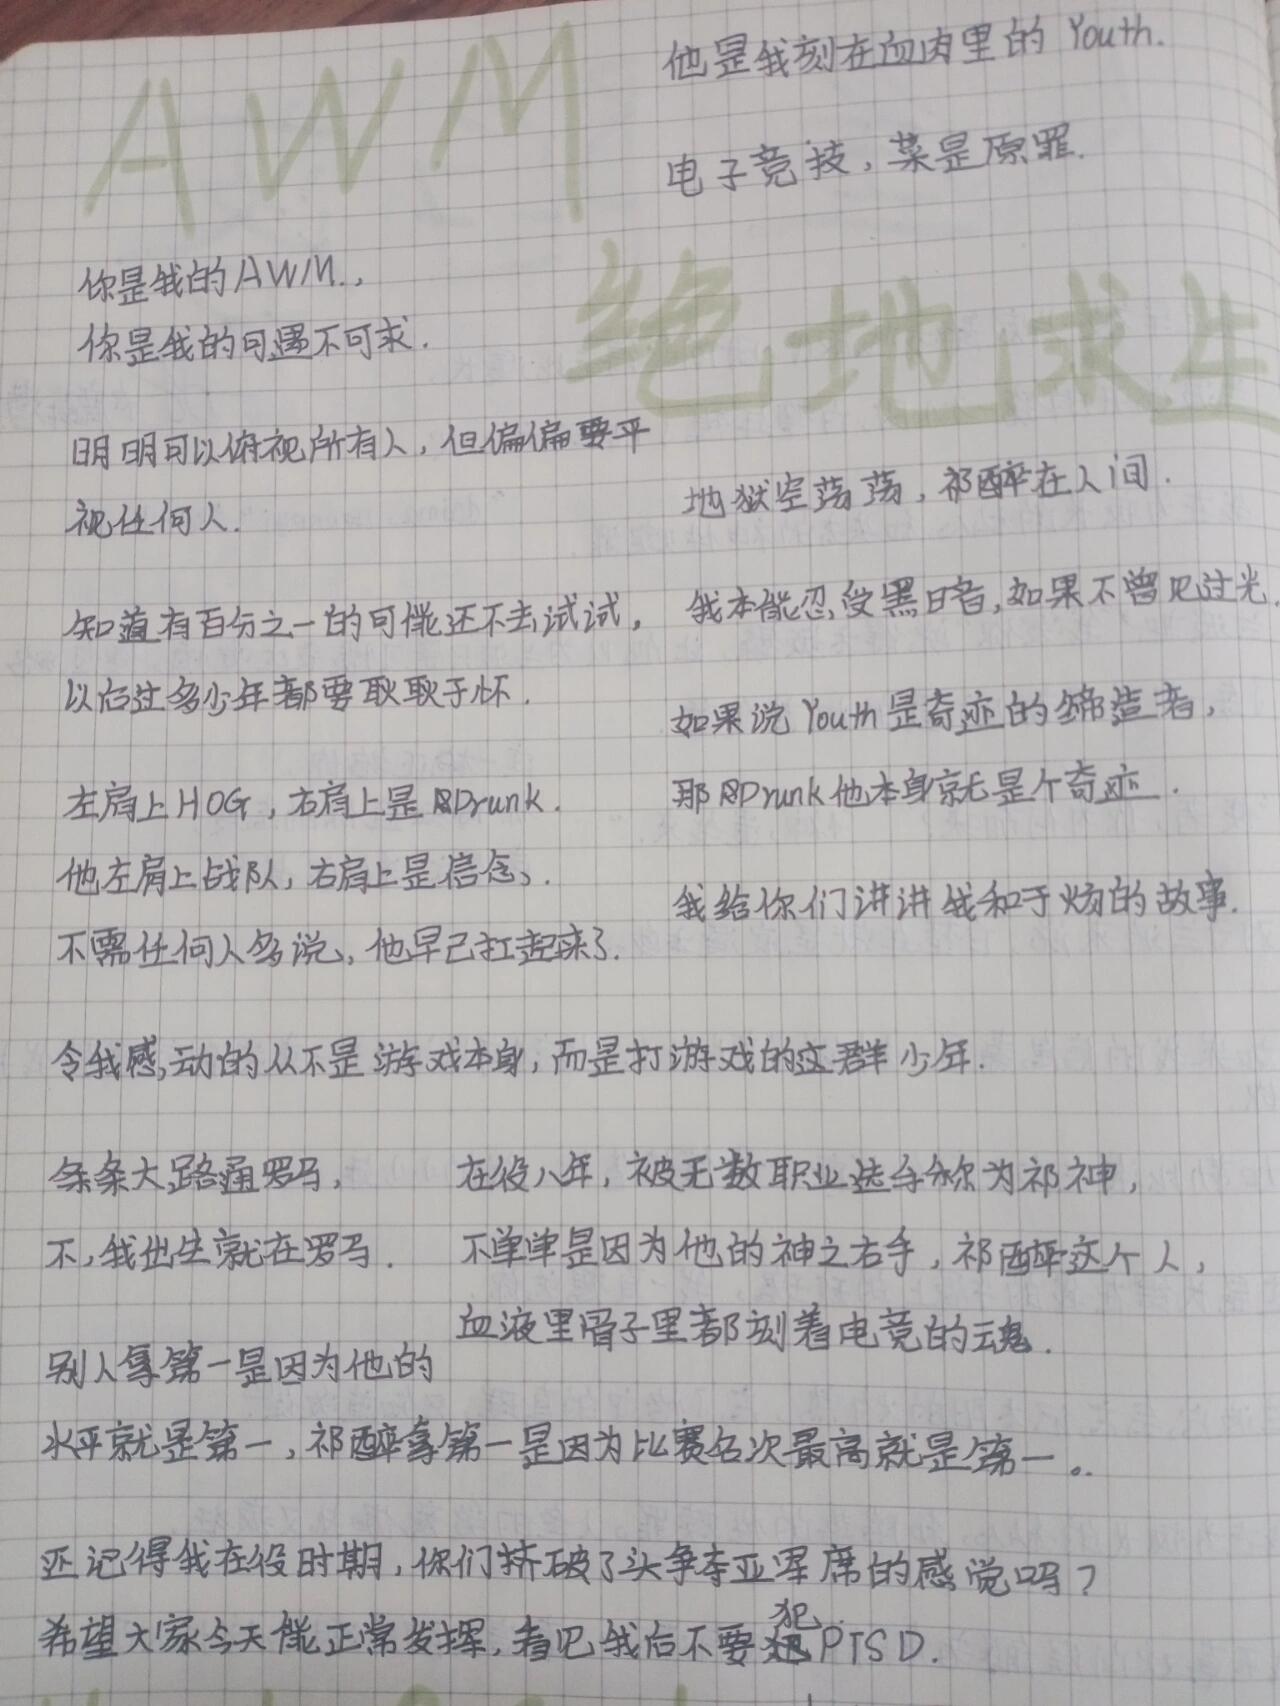 AWM
他是我刻在血肉里的 Youth.
电子竞技，菜是原罪.
你是我的AWM.，
你是我的可遇不可求.
绝地求生
明明可以俯视所有人，但偏偏要平
视任何人.
地狱空荡荡，祁醉在人间.
知道有百分之一的可能还不去试试，
以后过多少年都要耿耿于怀.
我本能忍受黑暗，如果不曾见过光.
如果说 Youth 是奇迹的缔造者，
那Drunk他本身就是个奇迹.
左肩上HOG，右肩上是Drunk.
他左肩上战队，右肩上是信念、.
不需任何人多说、他早已扛起来了.
我给你们讲讲我和于炀的故事.
令我感动的从不是游戏本身，而是打游戏的这群少年.
条条大路通罗马，
不，我出生就在罗马.
在役八年，被无数职业选手称为祁神，
不单单是因为他的神之右手，祁醉这个人，
血液里骨子里都刻着电竞的魂.
别人拿第一是因为他的
水平就是第一，祁醉拿第一是因为比赛名次最高就是第一。.
还记得我在役时期，你们挤破了头争夺亚军席的感觉吗？
希望大家今天能正常发挥，看见我后不要犯PTSD.